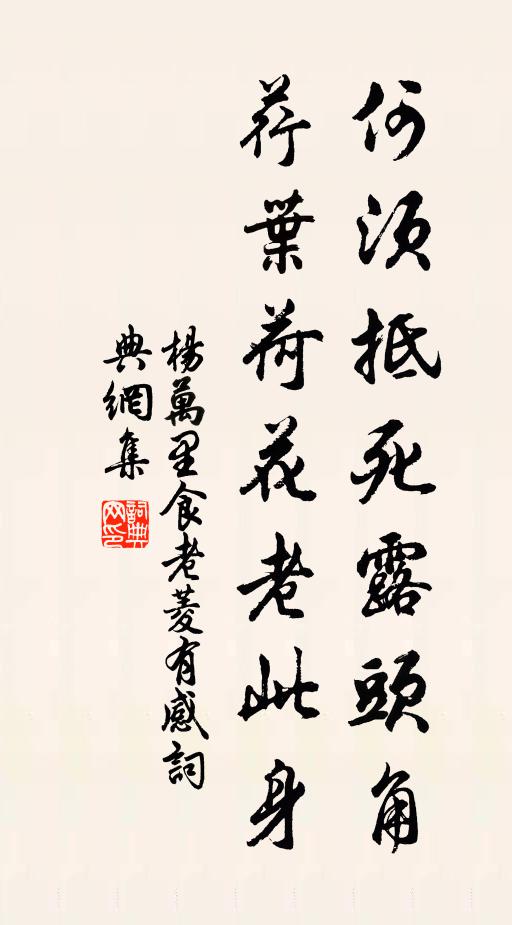 何須抵死露頭角
荷葉荷花老此身
楊萬里食老菱有感詞
典網集
詞典网印